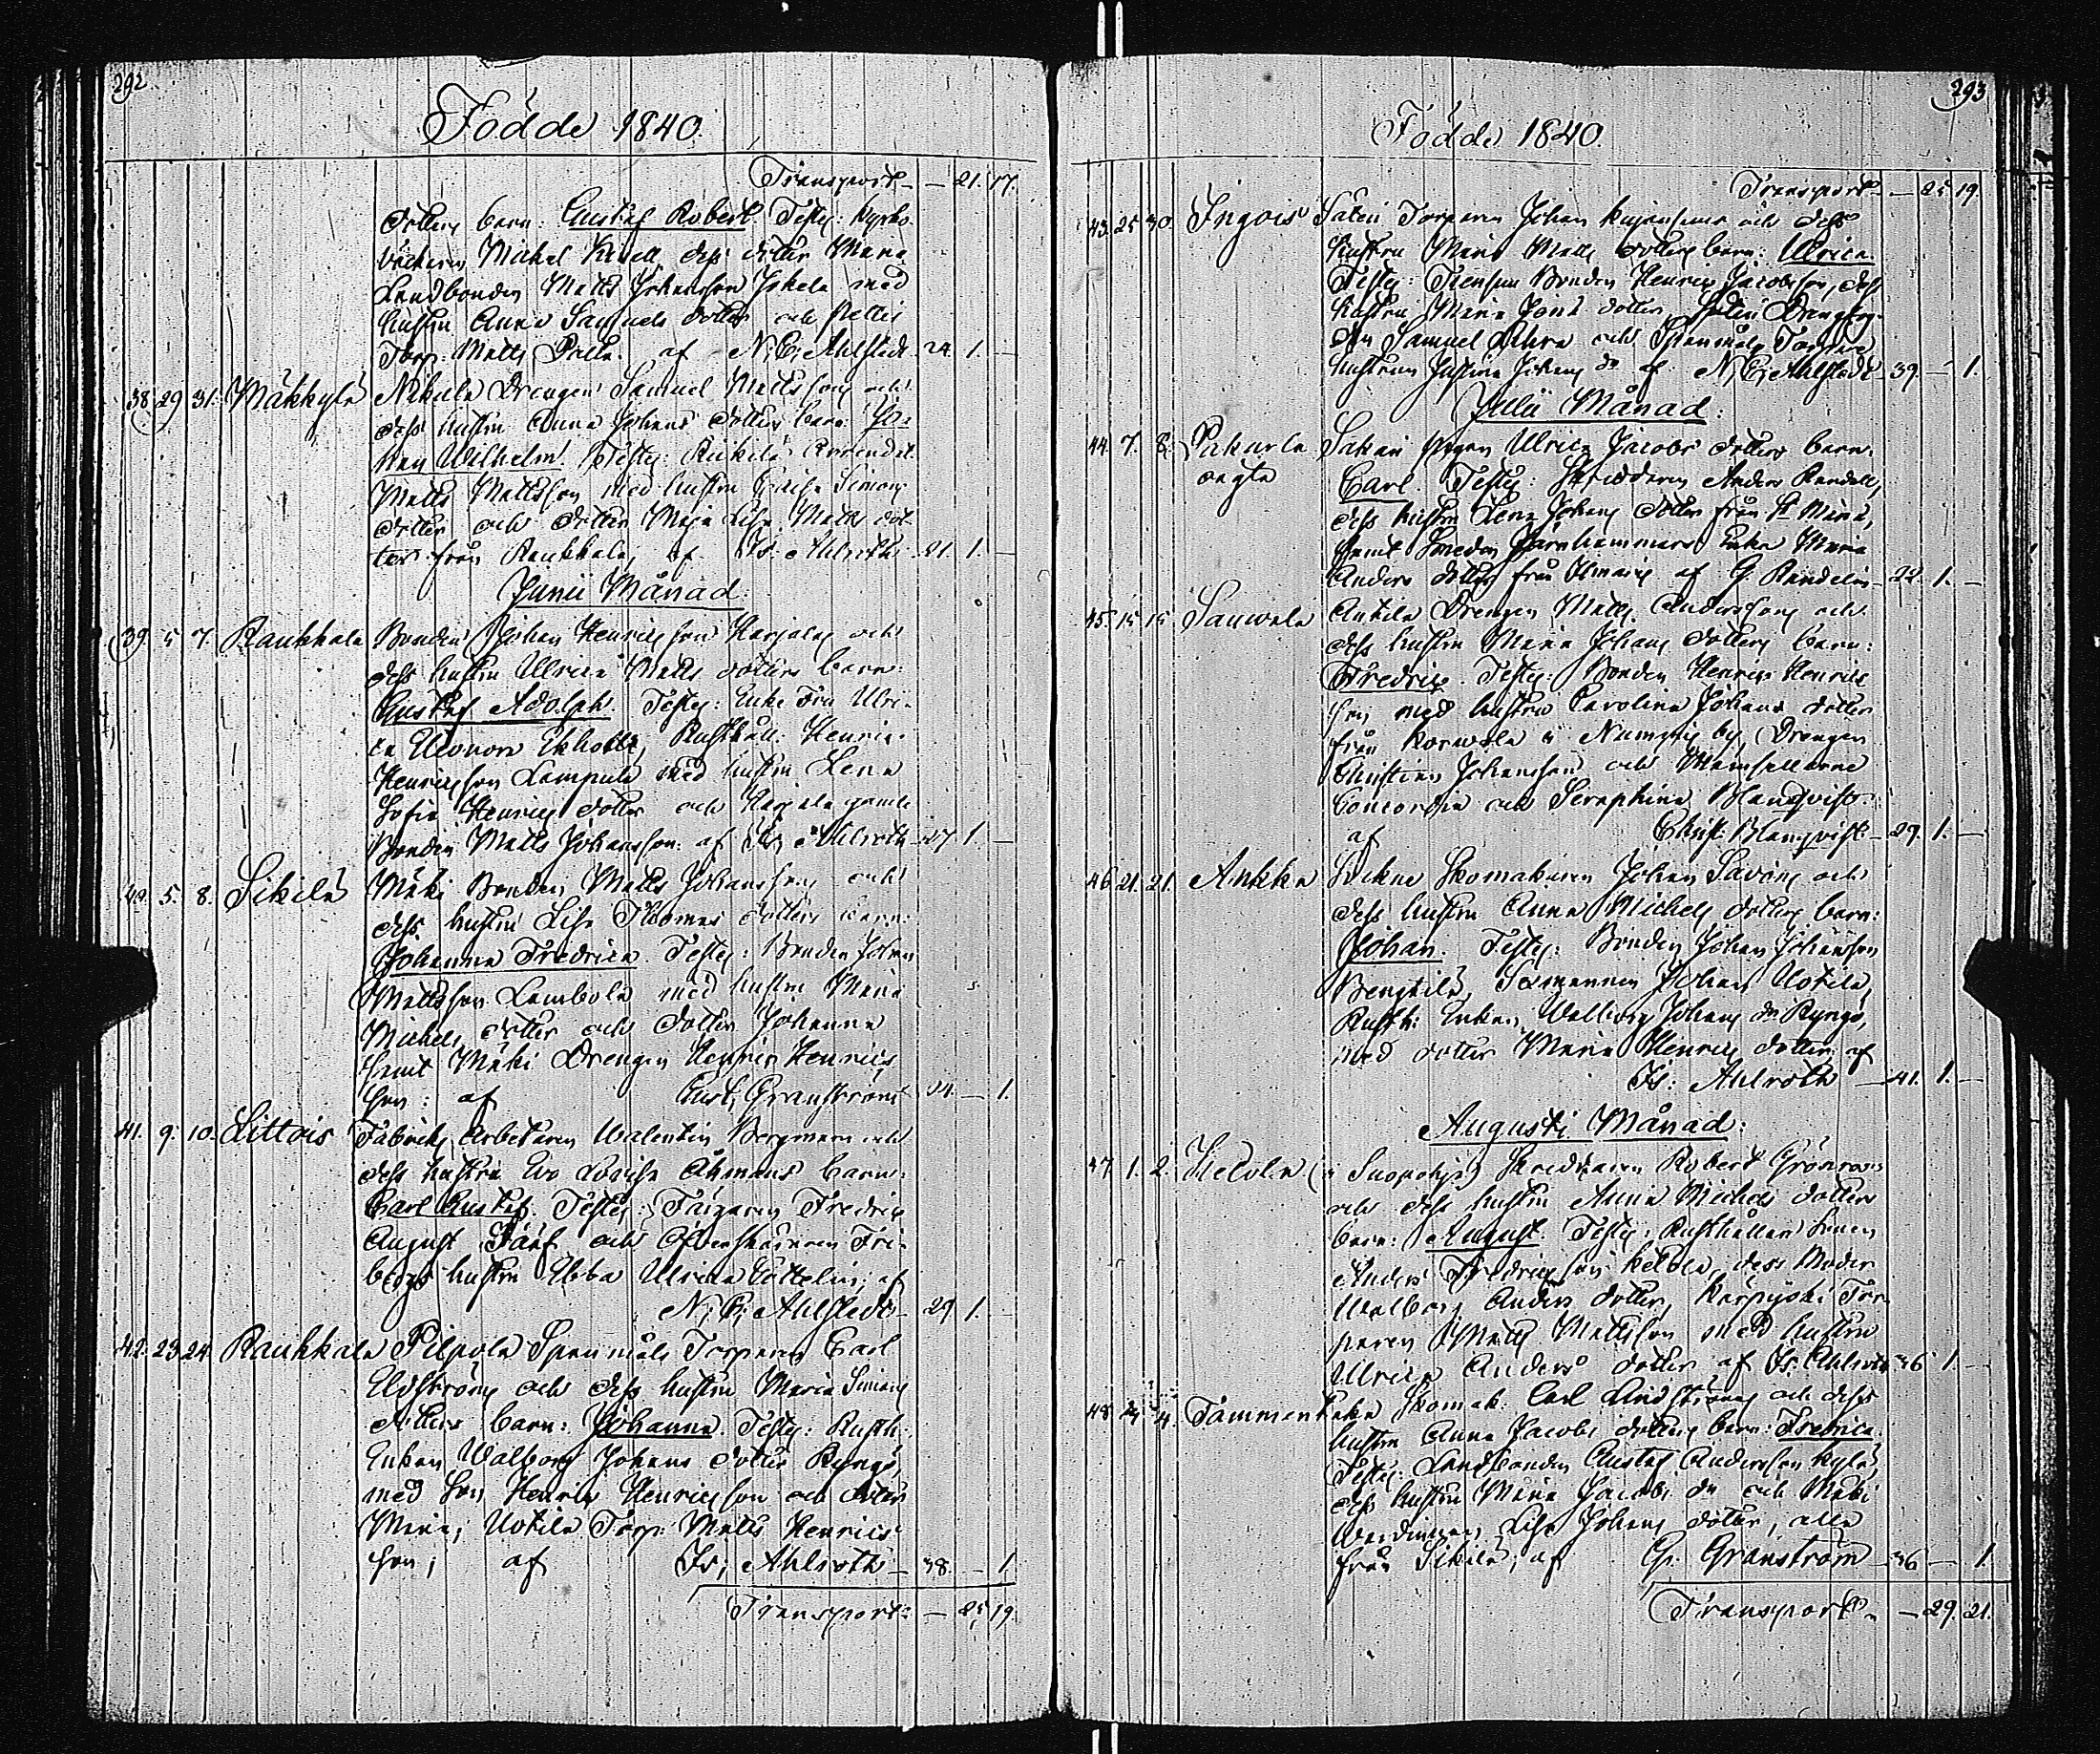 292
Födde 1840.
Transport — 21. 17.
dotters barn: Gustaf Robert Testes: Kyrko
väcktaren Michel Knell dess dotter Maria
Landbonden Matts Johansson Jokela med
hustru Anna Samuels dotter och
Torp: Matts af N; E; Ahlstedt 24. 1. —
38. 29 31. Mäkkylä Nikula Drengen Samuel Mattsson och
dess hustru Anna Johans dotters barn: Jo-
han Wilhelm. Testes:
Matts Mattsson med hustru Caisa Simons
dotter och dotter Maja Lisa Matts dot-
ter från Raukkala; af Is: Ahlroth 21. 1. —
Junii Månad:
39. 5 7. Raukkala Bonden Johan Henricsson Harjalas och
dess hustru Ulrica Matts dotters barn:
Gustaf Adolph. Testes: Enke Fru Ulri-
ca Eleonora Ekholtz, Rusthåll: Henric
Henricsson Lampula med hustru Lena
Sofia Henrics dotter och Harjala gamla
Bonden Matts Johansson: af Is: Ahlroth 27 1. —
40. 5. 8. Sikilä Mäki Bonden Matts Johansson och
dess hustru Lisa Thomas dotters barn:
Johanna Fredrica. Testes: Bonden Johan
Mattsson Lambola med hustru Maria
Michels dotter och dotter Johanna
samt Mäki Drengen Henric Henrics
son: af Gust; Granström 24. — 1.
41. 9. 10. Littois Fabriks Arbetaren Valentin Bergman och
dess hustru Eva Lovisa Åhmans barn:
Carl Gustaf. Testes: Färgaren Fredric
August Särf och Öfverskäraren Fri-
bergs hustru Ebba Ulrica Cottelin; af
N; E; Ahlstedt — 29 1. —
42. 23 24 Raukkala Pilpola Spanmåls Torparen Carl
Elgström och dess hustru Maria Simons
dotters barn: Johanna. Testes: Rusth:
Enkan Walborg Johans dotter Ryngö,
med son Henric Henricsson och dotter
Maria; Uotila Torp: Matts Henrics
son; af Is; Ahlroth — 38. — 1
Transport — 25 19.
293
Födde 1840.
Transport — 25 19.
43. 25 30. Ingois Säteri Torparen Johan och dess
hustru Maria Matts dotters barn: Ulrica
Testes: Bonden Henric Jacobsson, dess
hustru Maria Jonæ dotter, Säteri Drengen
Samuel och Spanmåls Torpare
hustrun Justina Johans dr af N; E; Ahlstedt 39 — 1.
Julii Månad:
44. 7. 8. Pukarla Sakari Pigan Ulrica Jacobs dotters barn:
Carl. Testes: Skräddaren Anders Randell,
dess hustru Lena Johans dotter från St Marie,
samt Smeden Järnhammars Enka Maria
Anders dotter från Ilmaris af G. Randelin — 22. 1. —
45. 15 15 Sauvala Anttila Drengen Matts Andersson och
dess hustru Maria Johans dotters barn:
Fredric. Testes: Bonden Henric Henrics
son med hustru Carolina Johans dotter
från Korwola i Nummis by, Drengen
Christian Johansson och Mamsellerne
Concordia och Seraphina Blanqvist:
af Christ: Blanqvist — 29. 1. —
46 21. 21. Ankka Skomakaren Johan Savón och
dess hustru Anna Michels dotters barn:
Johan. Testes: Bonden Johan Johansson
Bengtilä, Sexmannen Johan Uotila,
Rusth: Enkan Walborg Johans dr Ryngö,
med dotter Maria Henrics dotter af
Is: Ahlroth — 41. 1. —
Augusti Månad:
47. 1. 2. Kelola (i Suopohja) Skräddaren Robert Grönroos
och dess hustru Anna Michels dotters
barn: August. Testes: Rusthållare Sonen
Anders Fredricsson Kelola, dess Moder
Walborg Anders dotter, Tor-
paren Matts Mattsson med hustru
Ulrica Anders dotter af Is. Ahlroth 36 1. —
48 4. Tammen Skomak: Carl Lindström och dess
hustru Anna Jacobs dotters barn: Fredrica
Testes: Landbonden Gustaf Andersson Kylä,
dess hustru Maria Jacobs dr och Mäki
Lisa Johans dotter, alla
från Sikilä; af G: Granström — 36 — 1.
Transport — 29. 21.